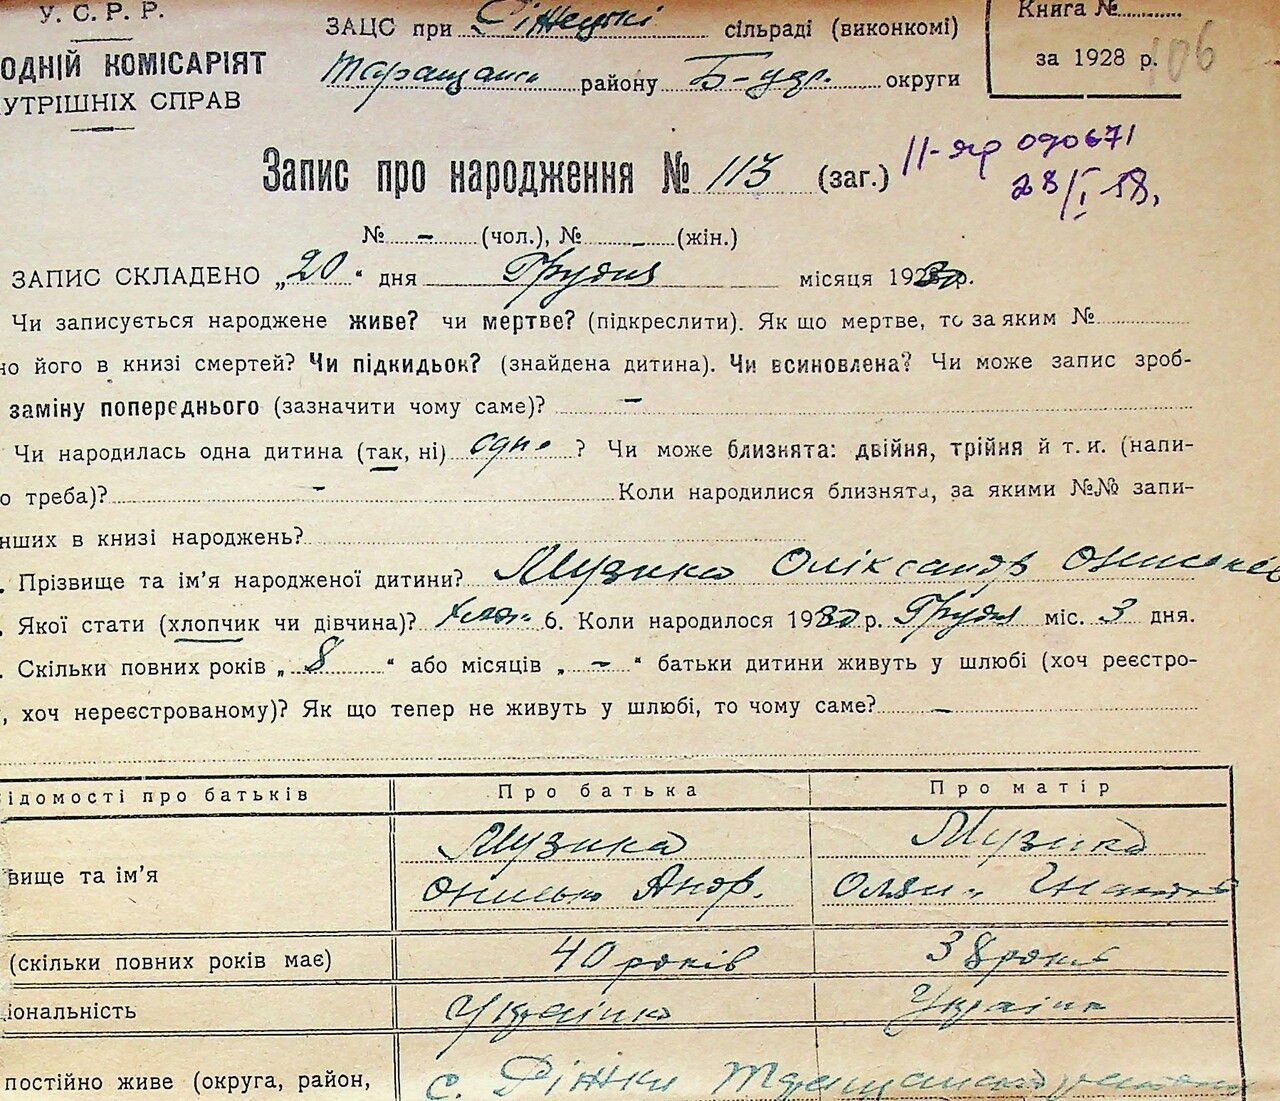 У. С. Р. Р.
ОДНІЙ КОМІСАРІЯТ
УТРІШНІХ СПРАВ
ЗАЦС при сільраді (виконкомі)
Таращанськ району Б-церк. округи
Книга №
за 1928 р. 106
Запис про народження № 113 (заг.)
II-яр 090671
28/I 58.
№ - (чол.), № - (жін.)
ЗАПИС СКЛАДЕНО „20“ дня Грудня місяця 1930 р.
Чи записується народжене живе? чи мертве? (підкреслити). Як що мертве, то за яким №
но його в книзі смертей? Чи підкидьок? (знайдена дитина). Чи всиновлена? Чи може запис зроб-
заміну попереднього (зазначити чому саме)? -
Чи народилась одна дитина (так, ні) одна ? Чи може близнята: двійня, трійня й т. и. (напи-
о треба)? - Коли народилися близнята, за якими №№ запи-
нших в книзі народжень?
. Прізвище та ім’я народженої дитини? Музика Оліксандр
. Якої стати (хлопчик чи дівчина)? хлоп. 6. Коли народилося 1930 р. Грудня міс. 3 дня.
. Скільки повних років „8“ або місяців „-“ батьки дитини живуть у шлюбі (хоч реєстро-
, хоч нереєстрованому)? Як що тепер не живуть у шлюбі, то чому саме? -
ідомості про батьків Про батька Про матір
вище та ім’я Музика Музика
Онисько Андр.
(скільки повних років має) 40 років 38 років
іональність Українка Українк
постійно живе (округа, район, с. Ріжки Таращанськ